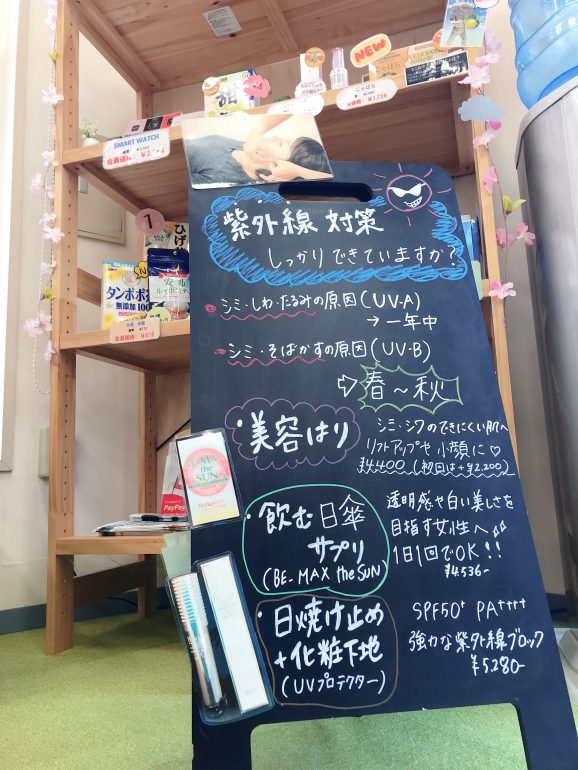 NEW
じゃばら
¥1,728
SMART WATCH
会員価格
1
ひげ
タンポポ
無添加100
PayPay
紫外線 対策
しっかりできていますか?
シミ・しわ・たるみの原因(UV-A)
→一年中
シミ・そばかすの原因(UV-B)
⇨春~秋
・美容はり
シミ・シワのできにくい肌へ
リフトアップや小顔に♡
¥4,400(初回は+¥2,200)
the SUN
・飲む日傘
サプリ
(BE-MAX the SUN)
透明感や白い美しさを
目指す女性へ
1日1回でOK!!
¥4,536-
・日焼け止め
+化粧下地
(UVプロテクター)
SPF50+ PA++++
強力な紫外線ブロック
¥5,280-